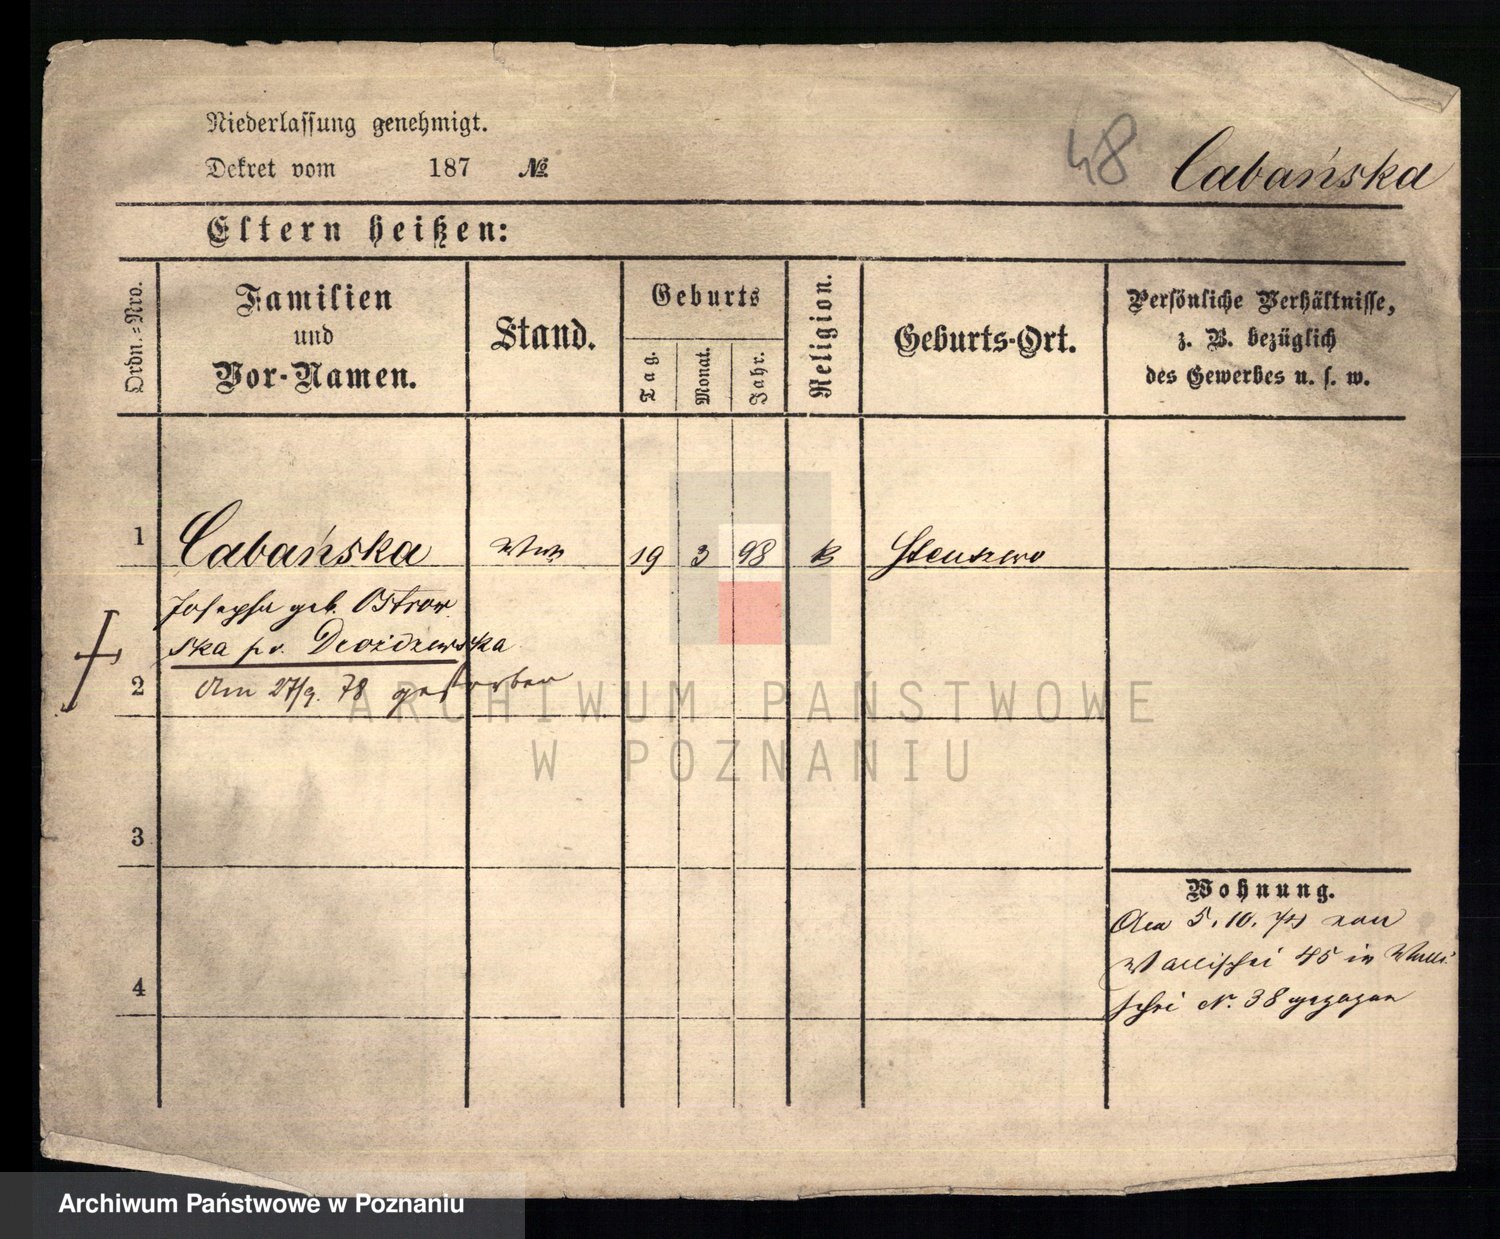 Niederlassung genehmigt.
48 Cabańska
Dekret vom 187 №
Eltern heißen:
Ordn.-Nro.
Familien und Vor-Namen.
Stand.
Geburts
Tag.
Monat.
Jahr.
Religion.
Geburts-Ort.
Persönliche Verhältnisse,
z. B. bezüglich
des Gewerbes u. s. w.
1 Cabańska Ww 19 3 98 K Stenszewo
Josepha geb. Ostrow
ska pv. Drożdzewska
2 Am 27/9. 78 gestorben
3
Wohnung.
Am 5. 10. von
Wallischei 45 in Walli
schei N. 38 gezogen
4
ARCHIWUM PAŃSTWOWE
W POZNANIU
Archiwum Państwowe w Poznaniu